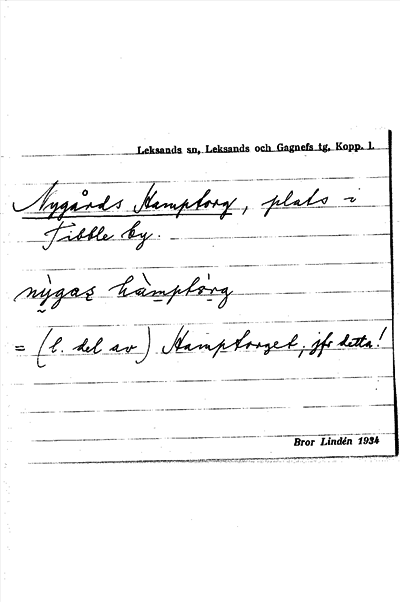 Leksands sn, Leksands och Gagnefs tg, Kopp. l.
Nygårds Hamptorg, plats i
Tibble by.
nỳgas hàmptòrg
= (l. del av) Hamptorget; jfr detta!
Bror Lindén 1934